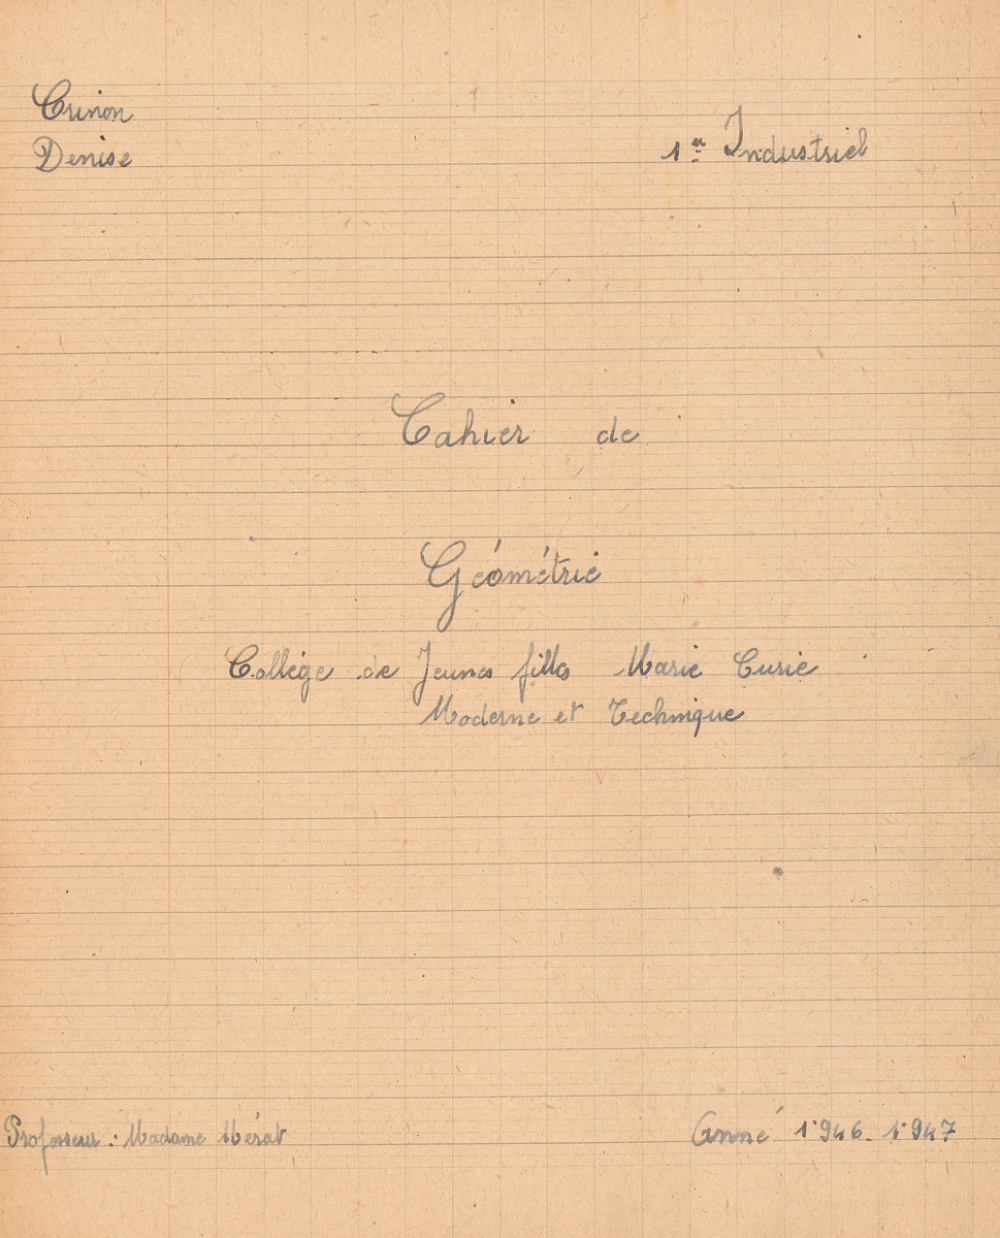 Crinon
Denise
1er Industriel
Cahier de
Géométrie
Collège de Jeunes filles Marie Curie
Moderne et Technique
Professeur : Madame Mérat
Anné 1946-1947